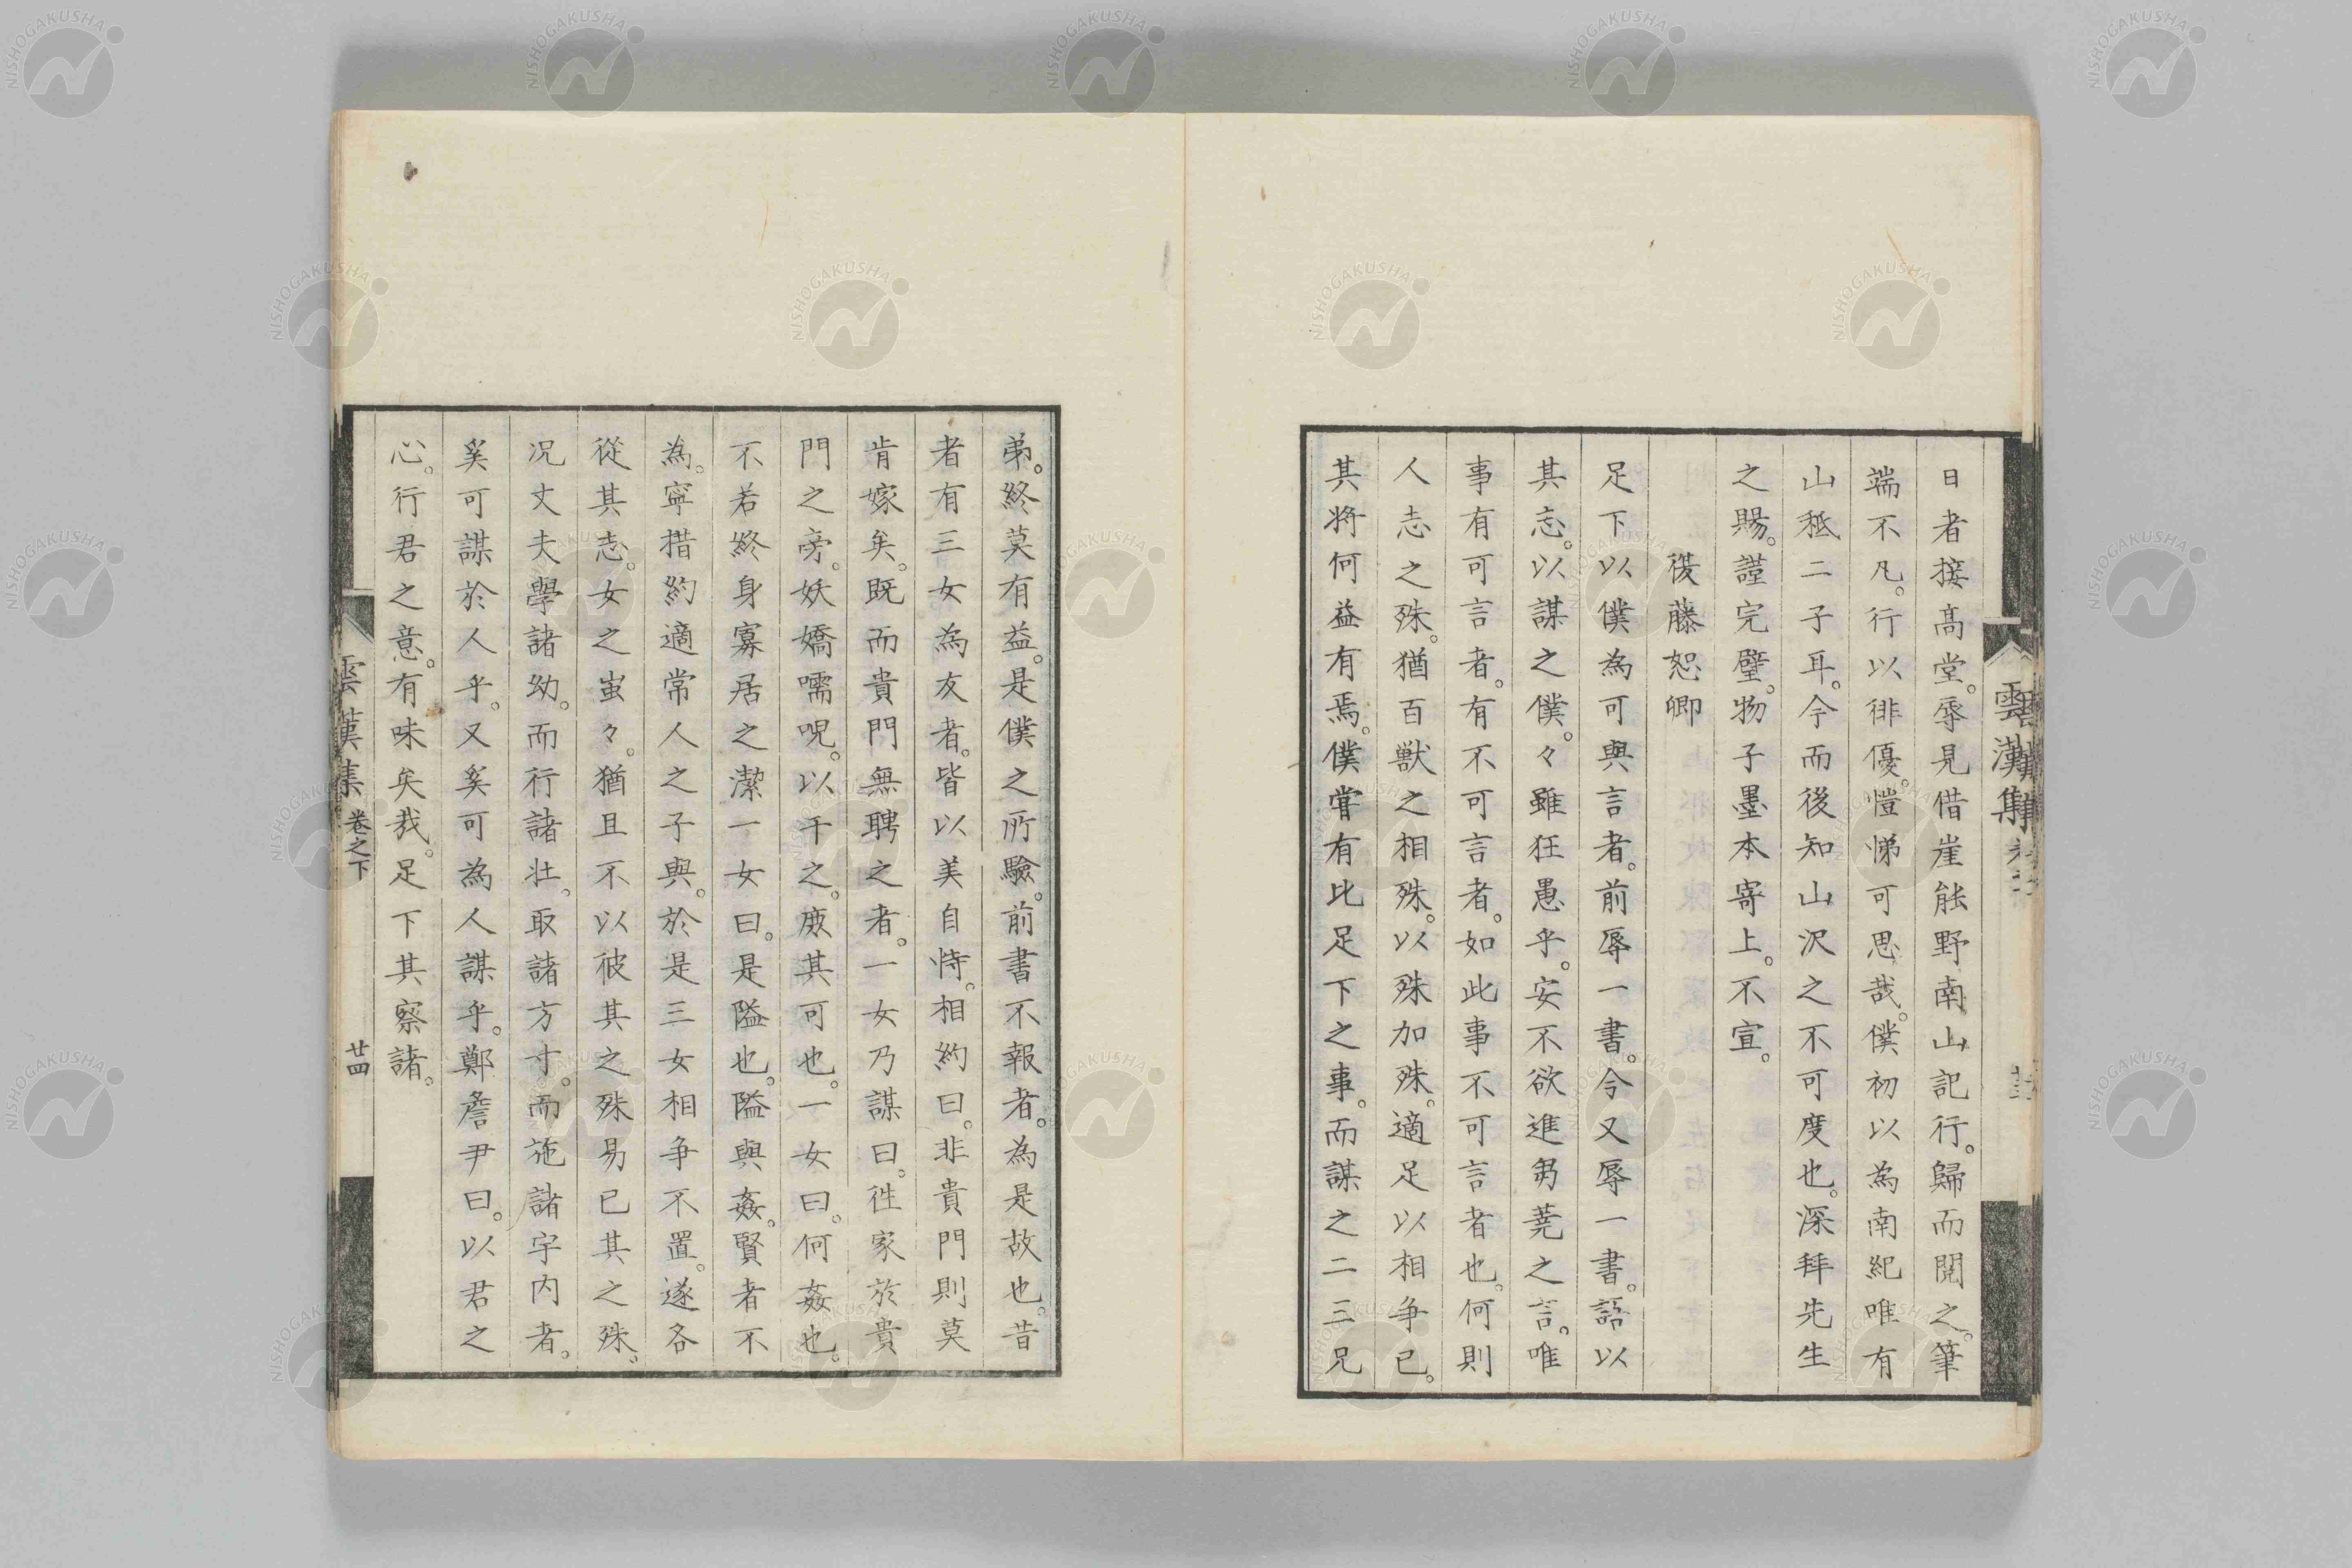 日者接髙堂。辱見借崖熊野南山記行。歸而閲之。筆
端不凡。行以俳優。愷悌可思哉。僕初以為南紀唯有
山秪二子耳。今而後知山沢之不可度也。深拜先生
之賜。謹完璧。物子墨本寄上。不宣。
後藤恕卿
足下以僕為可與言者。前辱一書。今又辱一書。語以
其志。以謀之僕。々雖狂愚乎。安不欲進芻蕘之言。唯
事有可言者。有不可言者。如此事不可言者也。何則
人志之殊。猶百獣之相殊。以殊加殊。適足以相争已。
其将何益有焉。僕甞有比足下之事。而謀之二三兄
雲漢集
弟。終莫有益。是僕之所驗。前書不報者。為是故也。昔
者有三女為友者。皆以美自恃。相約曰。非貴門則莫
肯嫁矣。既而貴門無聘之者。一女乃謀曰。徃家於貴
門之旁。妖嬌嚅唲。以干之。庶其可也。一女曰。何姦也。
不若終身寡居之潔一女曰。是隘也。隘與姦。賢者不
為。寧措約適常人之子與。於是三女相争不置。遂各
從其志。女之蚩々。猶且不以彼其之殊易已其之殊。
况丈夫學諸幼。而行諸壮。取諸方寸。而施諸宇内者。
奚可謀於人乎。又奚可為人謀乎。鄭詹尹曰。以君之
心。行君之意。有味矣哉。足下其察諸。
雲漢集 卷之下 廿四
NISHOGAKUSHA